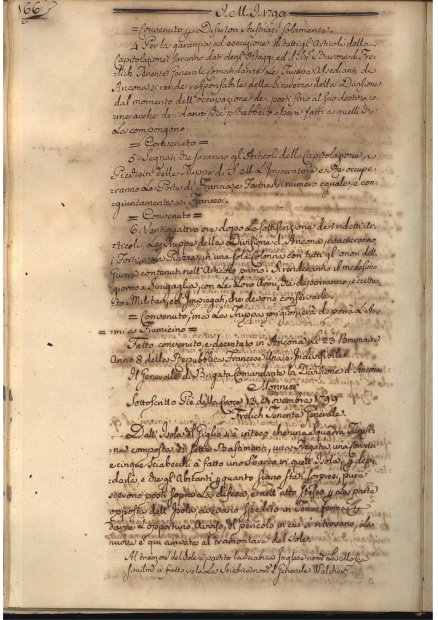 166
I. M. I. 1799
= Convenuto, e Disertori Austriaci solamente.
4. Per la garanzia, ed esecuzione di tutti gl'Articoli della
Capitolazione saranno dati degl'Ostaggi, ed il Sig.r Barone di Fröe-
lich Tenente Generale Comandante le Truppe Assedianti di
Ancona si rende responsabile della Sicurezza della Divisione
dal momento dell'occupazione de' posti sino al suo destino, co-
me anche de' danni, che potrebbero essere fatti a quelli, che
La compongono.
= Convenuto =
5. Segnati che saranno gl'Articoli della Capitolazione,
delle Truppe di S. M. L'Imperatore e Re occupe-
ranno Le Porte di Francia, e Farina in numero eguale, e con-
giuntamente a' Francesi.
= Convenuto =
6. Ventiquattro ore dopo La sottoscrizione de' sudetti Ar-
ticoli, Le Truppe della Divisione d'Ancona evacueranno
i Forti, e La Piazza in una sola Colonna con tutti gl'onori della
Guerra contenuti nell'Articolo primo: Si renderanno il medesimo
giorno a Sinigaglia con Le Loro Armi, che deporranno, eccettu-
ati Militari, ed Impiegati, che devono conservarle.
= Convenuto, ma La Truppa prigioniera deporrà Le Ar-
mi a Fiumicino =
Fatto, convenuto, e decretato in Ancona li 23 Brumaire
Anno 8 della Repubblica Francese Una, ed Indivisibile.
Il Generale di Brigata Comandante La Divisione d'Ancona
Monnier
Sottoscritto Pie della Croce 13 Novembre 1799
Frölich Tenente Generale.
Dall'Isola di Giglio si è inteso, che una Squadra
composta di sette Bastimenti, una Fregata,
e cinque Sciabecchi à fatto uno Sbarco in quell'Isola,
e degl'Abitanti, e quanto siano stati sorpresi, pure
si erono posti sopra La difesa, e nell'atto stesso, e La parte
opposta dell'Isola avevano spedito in Terra ferma
l'avviso del pericolo in cui si trovano, La
nuova è qui arrivata al tramontare del Sole.
Al tramontar del Sole è partita La Sciabica Inglese nom.a La
similm.e à fatto vela La Sciabica nom.a Generale Walcher